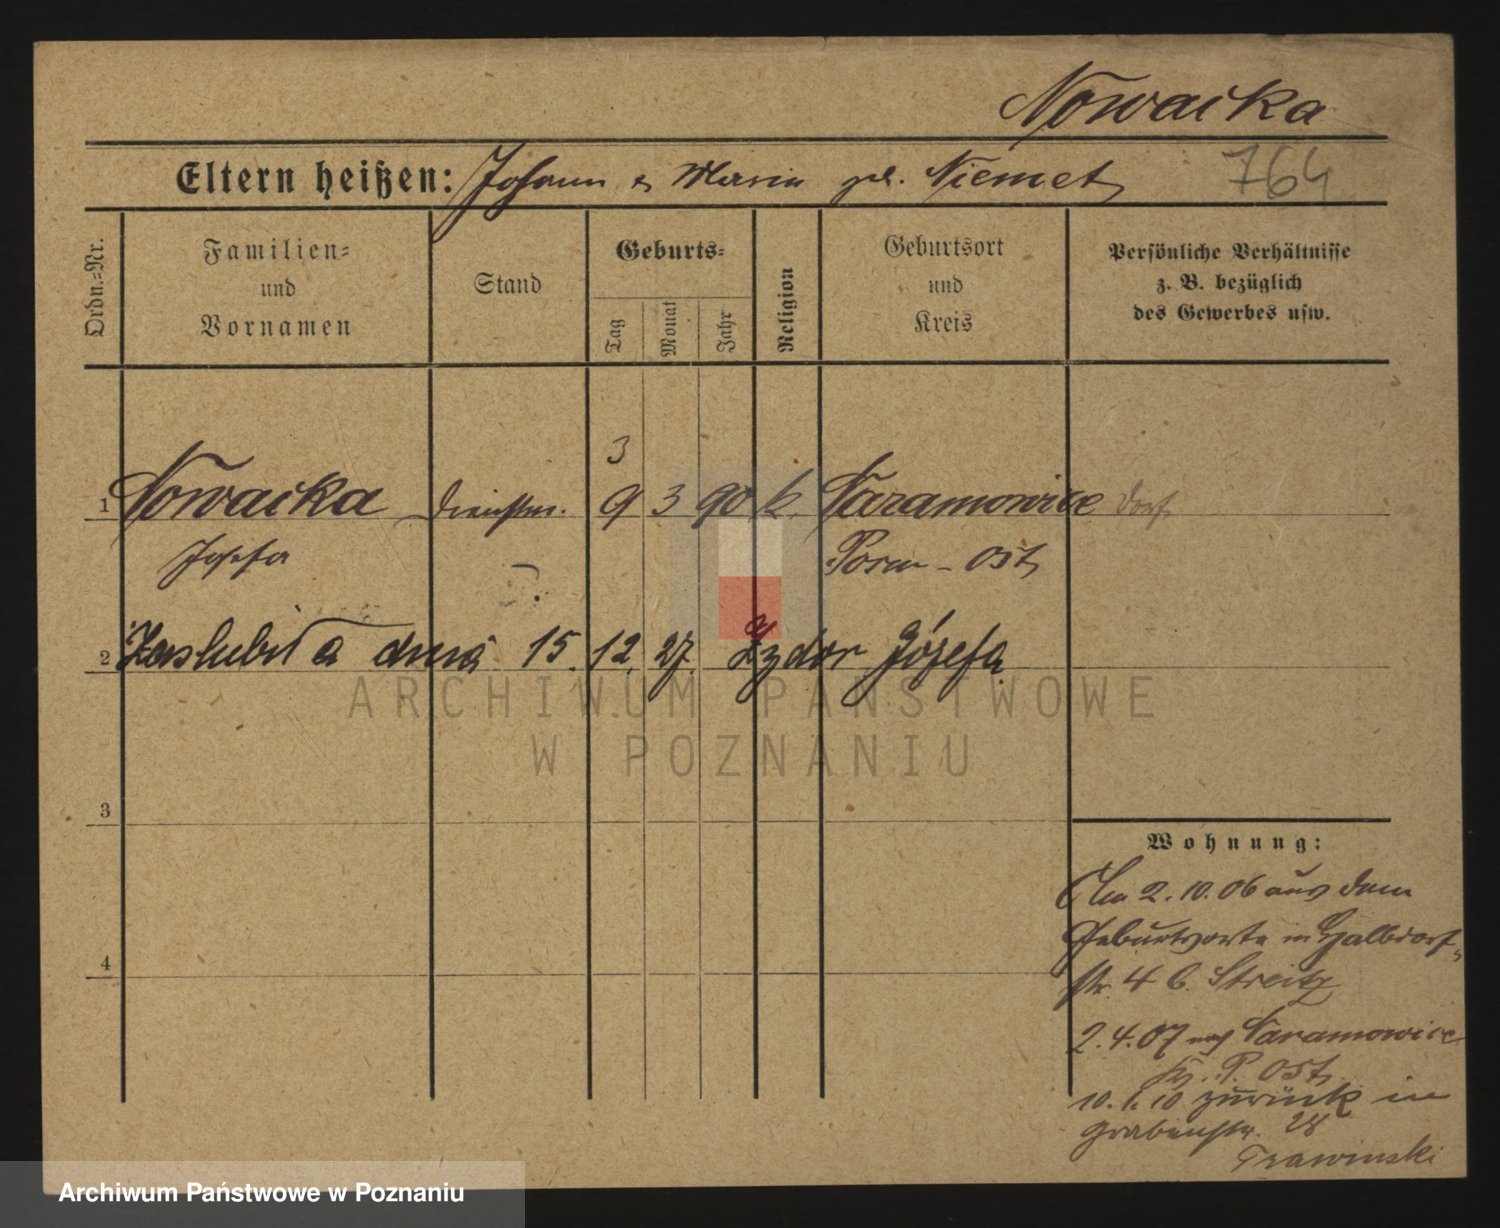 Nowacka
Eltern heißen: Johann & Maria geb. Niemet
764
Ordn.=Nr.
Familien=
und
Vornamen
Stand
Geburts=
Tag
Monat
Jahr
Religion
Geburtsort
und
Kreis
Persönliche Verhältnisse
z. B. bezüglich
des Gewerbes usw.
3
1 Nowacka Dienstm. 9 3 90 k. Naramowice Dorf
Josefa Posen - Ost
2 Zaslubiła dnia 15. 12. 27. Izydor Józefa
ARCHIWUM PAŃSTWOWE
W POZNANIU
3
Wohnung:
Am 2. 10. 06 aus dem
Geburtsorte in Halbdorf-
str. 4 b. Streitz
4
2. 4. 07 nach Naramowice
Kr. P. Ost
10. 1. 10 zurück in
Grabenstr. 28
Trawinski
Archiwum Państwowe w Poznaniu